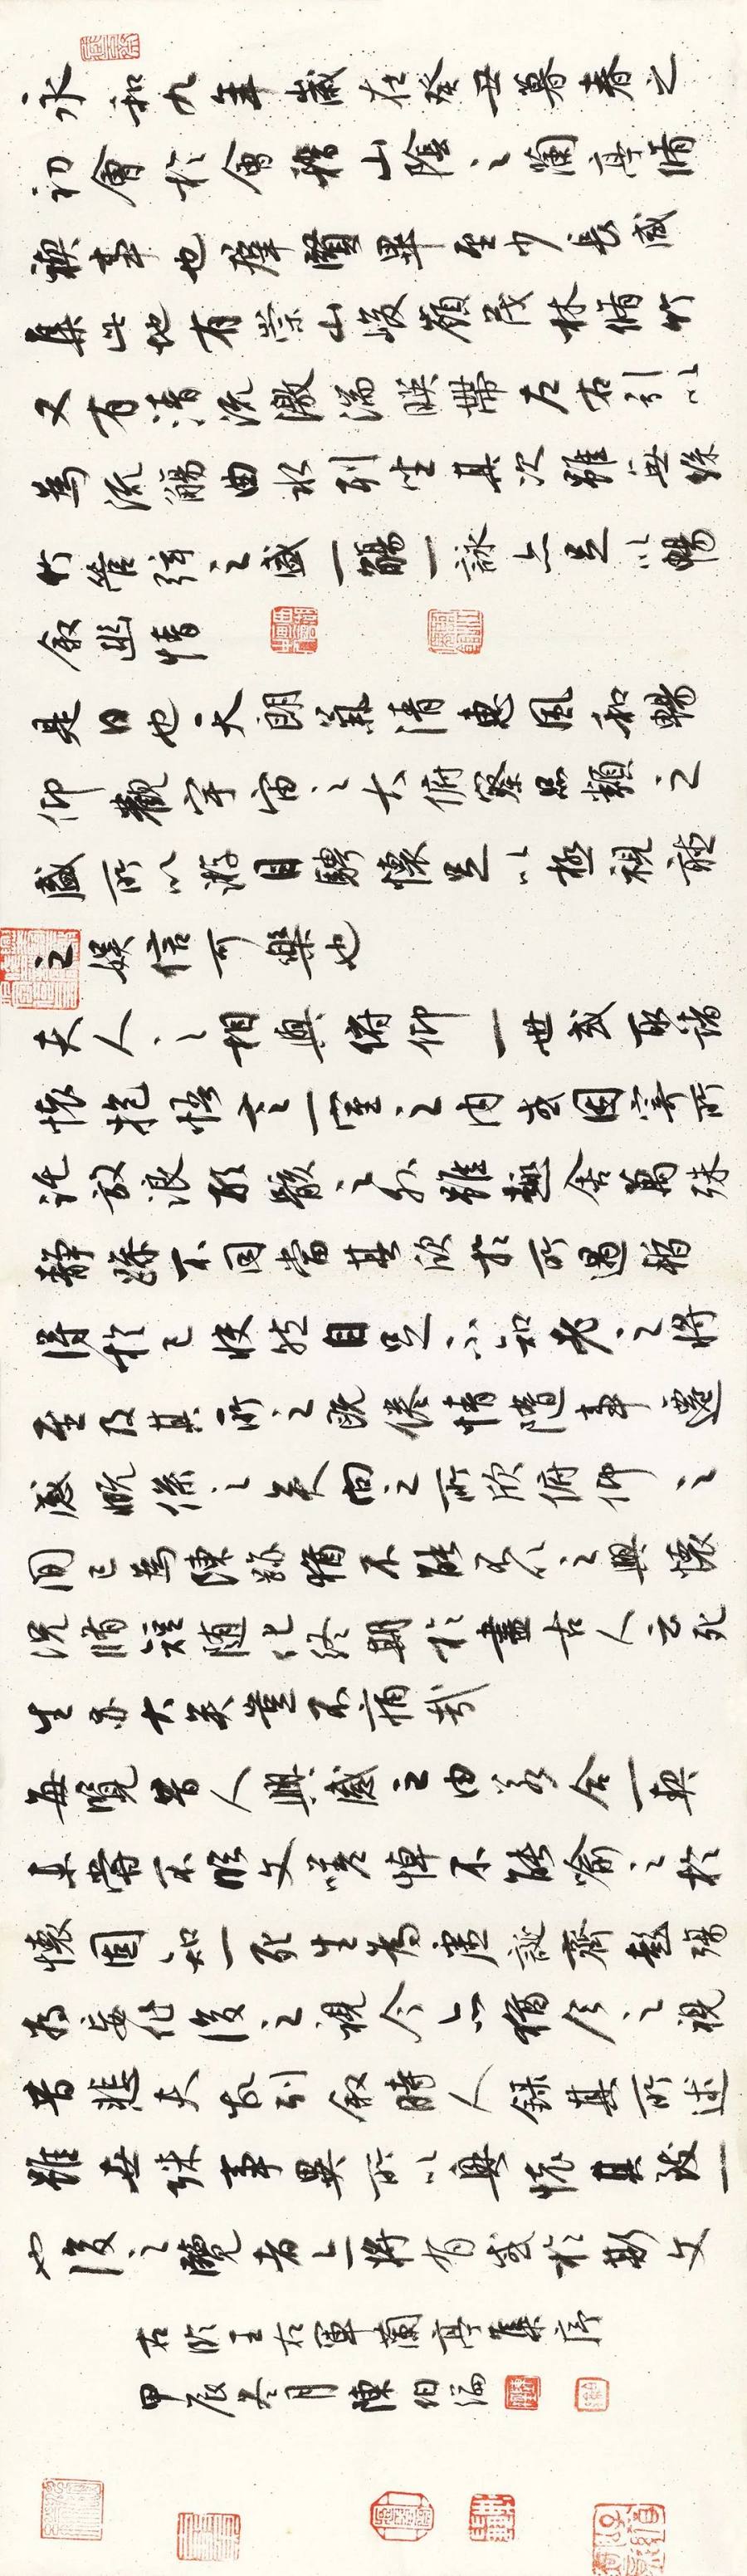 永和九年歲在癸丑暮春之
初會於會稽山陰之蘭亭脩
禊事也群賢畢至少長咸
集此地有崇山峻嶺茂林脩竹
又有清流激湍暎帶左右引以
為流觴曲水列坐其次雖無絲
竹管弦之盛一觴一詠亦足以暢
敘幽情
是日也天朗氣清惠風和暢
仰觀宇宙之大俯察品類之
盛所以遊目騁懷足以極視聽
之娛信可樂也
夫人之相與俯仰一世或取諸
懷抱悟言一室之內或因寄所
託放浪形骸之外雖趣舍萬殊
靜躁不同當其欣於所遇暫
得於己快然自足不知老之將
至及其所之既倦情隨事遷
感慨係之矣向之所欣俯仰之
間已為陳跡猶不能不以之興懷
況脩短隨化終期於盡古人云死
生亦大矣豈不痛哉
每覽昔人興感之由若合一契
未嘗不臨文嗟悼不能喻之於
懷固知一死生為虛誕齊彭殤
為妄作後之視今亦猶今之視
昔悲夫故列敘時人錄其所述
雖世殊事異所以興懷其致一
也後之覽者亦將有感於斯文
右臨王右軍蘭亭集序
甲辰冬月陳伯